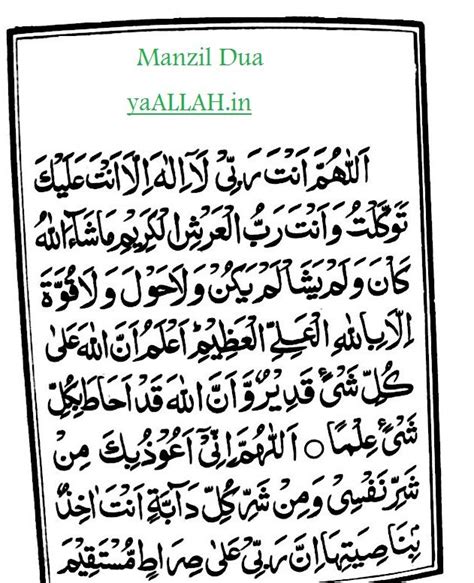 Manzil Dua
yaALLAH.in
اَللّٰهُمَّ اَنْتَ رَبِّىْ لَآ اِلٰهَ اِلَّا اَنْتَ عَلَيْكَ
تَوَكَّلْتُ وَاَنْتَ رَبُّ الْعَرْشِ الْكَرِيْمِ مَاشَآءَ اللّٰهُ
كَانَ وَلَمْ يَشَالَمْ يَكُنْ وَلَاحَوْلَ وَلَا قُوَّةَ
اِلَّا بِاللّٰهِ الْعَلِىِّ الْعَظِيْمِ اَعْلَمُ اَنَّ اللّٰهَ عَلٰى
كُلِّ شَىْءٍ قَدِيْرٌ وَّاَنَّ اللّٰهَ قَدْ اَحَاطَ بِكُلِّ
شَىْءٍ عِلْمًا ○ اَللّٰهُمَّ اِنِّىْ اَعُوْذُ بِكَ مِنْ
شَرِّ نَفْسِىْ وَمِنْ شَرِّ كُلِّ دَآبَّةٍ اَنْتَ اٰخِذٌۢ
بِنَاصِيَتِهَا اِنَّ رَبِّىْ عَلٰى صِرَاطٍ مُّسْتَقِيْمٍ